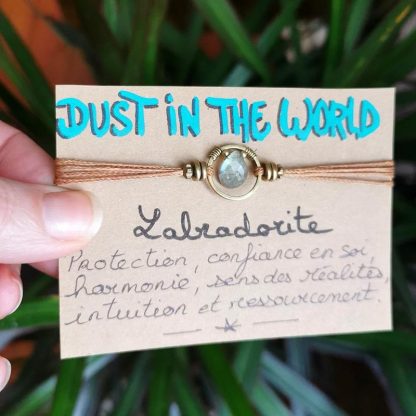 DUST IN THE WORLD
Labradorite
Protection, confiance en soi,
harmonie, sens des réalités,
intuition et ressourcement.